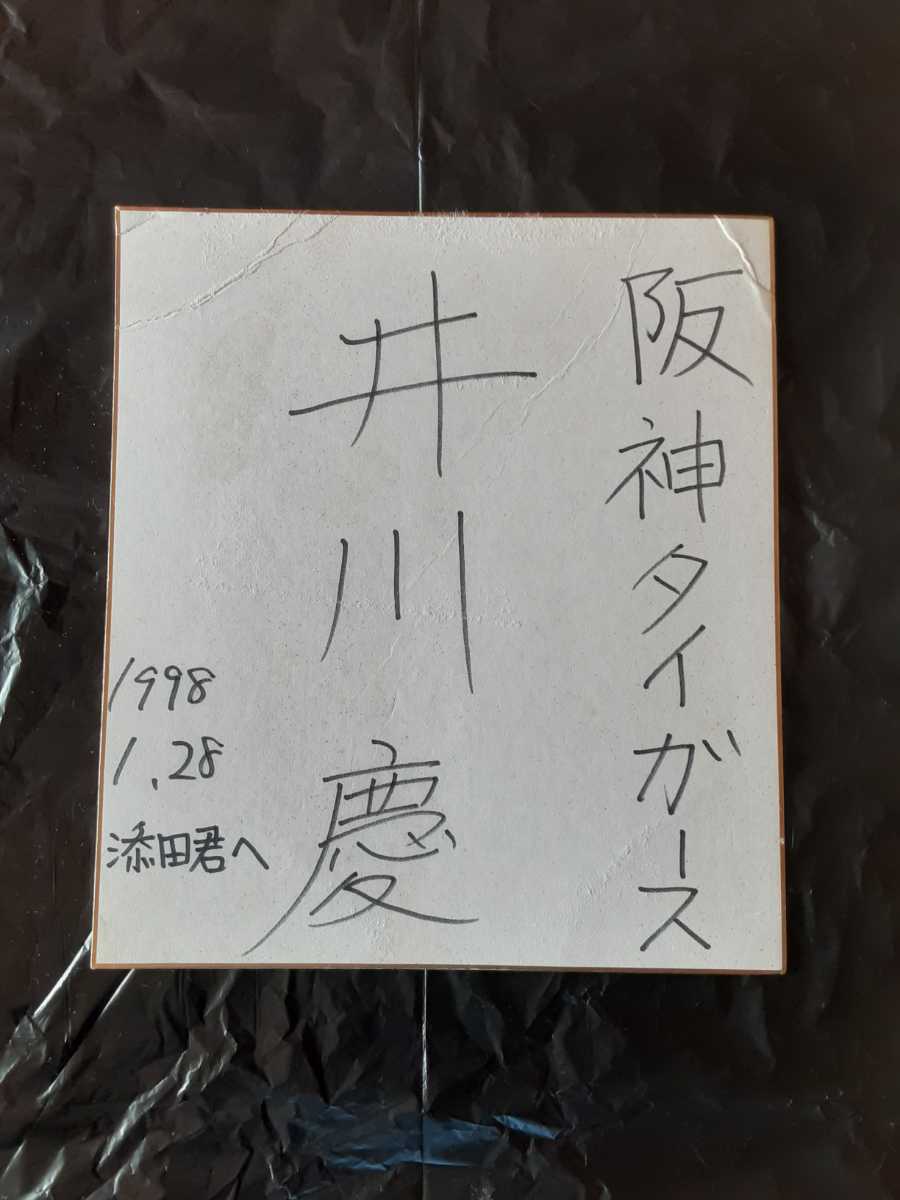 阪神タイガース
井川慶
1998
1.28
添田君へ